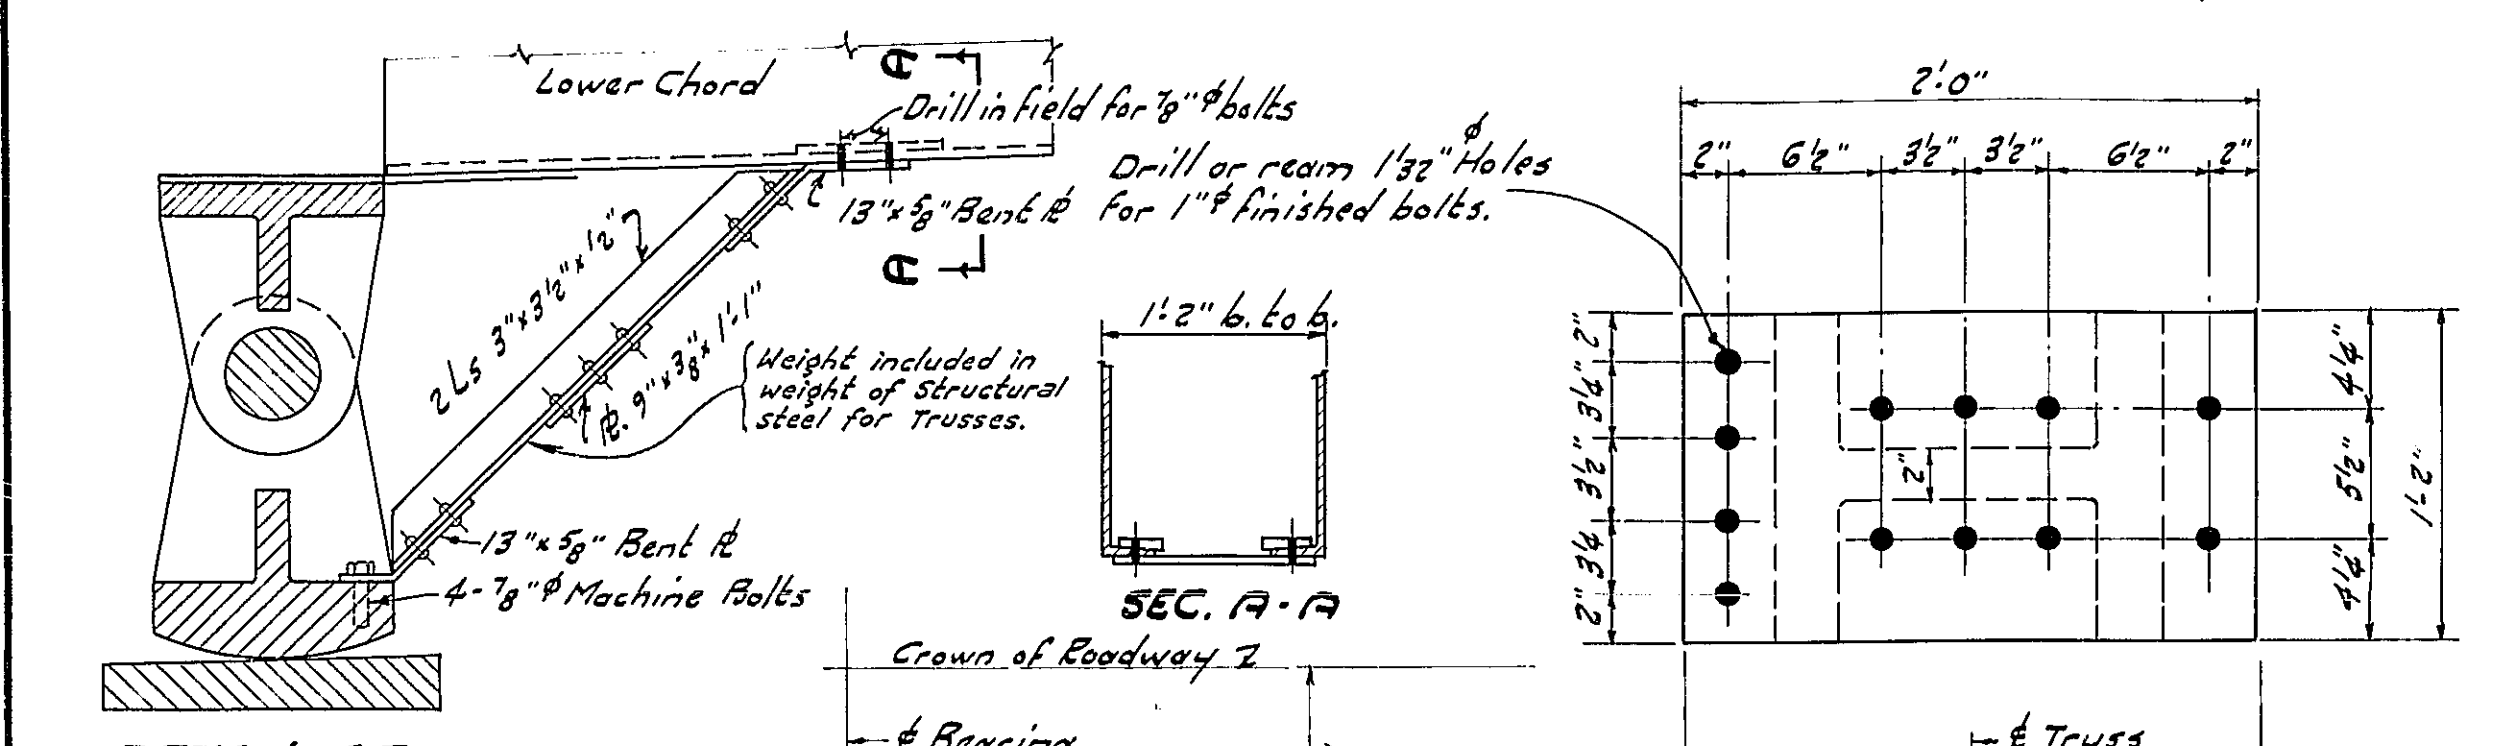 Lower Chord
A
Drill in field for 7/8" φ bolts
Drill or ream 1 1/32" φ Holes
for 1" φ finished bolts.
13" x 5/8" Bent ℞
A
2 Ls 3" x 3 1/2" x 1/2"
℞. 9" x 3/8" x 1'-1"
Weight included in
weight of Structural
steel for Trusses.
13" x 5/8" Bent ℞
4 - 7/8" φ Machine Bolts
1'-2" b. to b.
SEC. A-A
Crown of Roadway
℄ Bearing
2'-0"
2" 6 1/2" 3 1/2" 3 1/2" 6 1/2" 2"
2"
3 1/4"
3 1/2"
3 1/4
2"
2"
4 1/4"
5 1/2"
4 1/4"
1'-2"
℄ Truss